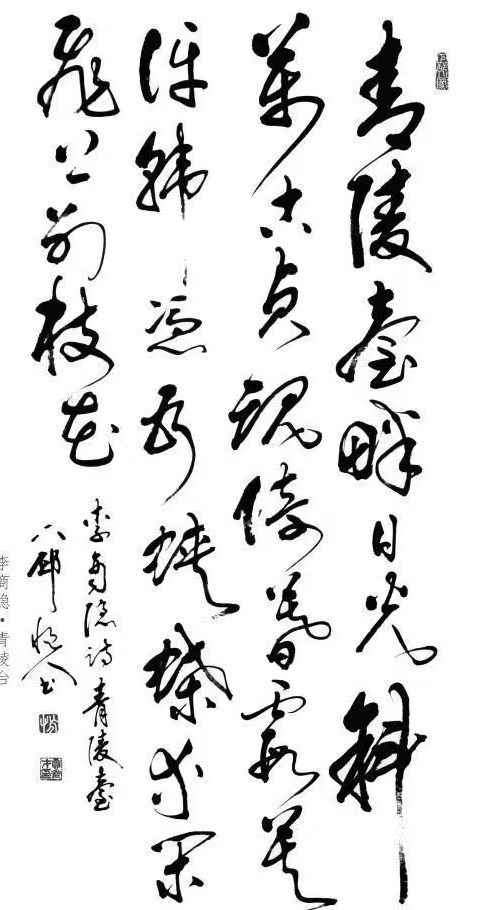 青陵臺畔日光斜
萬古貞魂倚暮霞莫
訝韓憑為蛺蝶等閒
飛上別枝花
李商隱詩青陵臺
李商隐·青陵台